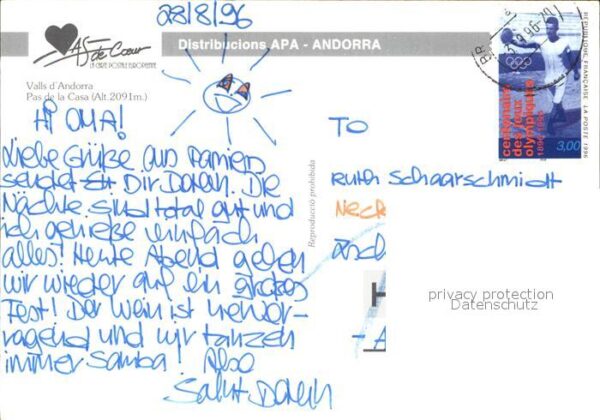 28/8/96
As de Cœur
LA CARTE POSTALE EUROPEENNE
Distribucions APA - ANDORRA
Valls d'Andorra
Pas de la Casa (Alt.2091m.)
Hi OMA!
Liebe Grüße aus Pamiers
sendet Dir Die
Nächte sind total gut und
ich genieße einfach
alles! Heute Abend gehen
wir wieder auf ein großes
Fest! Der Wein ist hervor-
ragend und wir tanzen
immer Samba! Also
Salut
Reproducció prohibida
TO
Ruth Schaarschmidt
Neck
privacy protection
Datenschutz
centenaire
des jeux
olympiques
1896-1996
3,00
REPUBLIQUE FRANÇAISE LA POSTE 1996